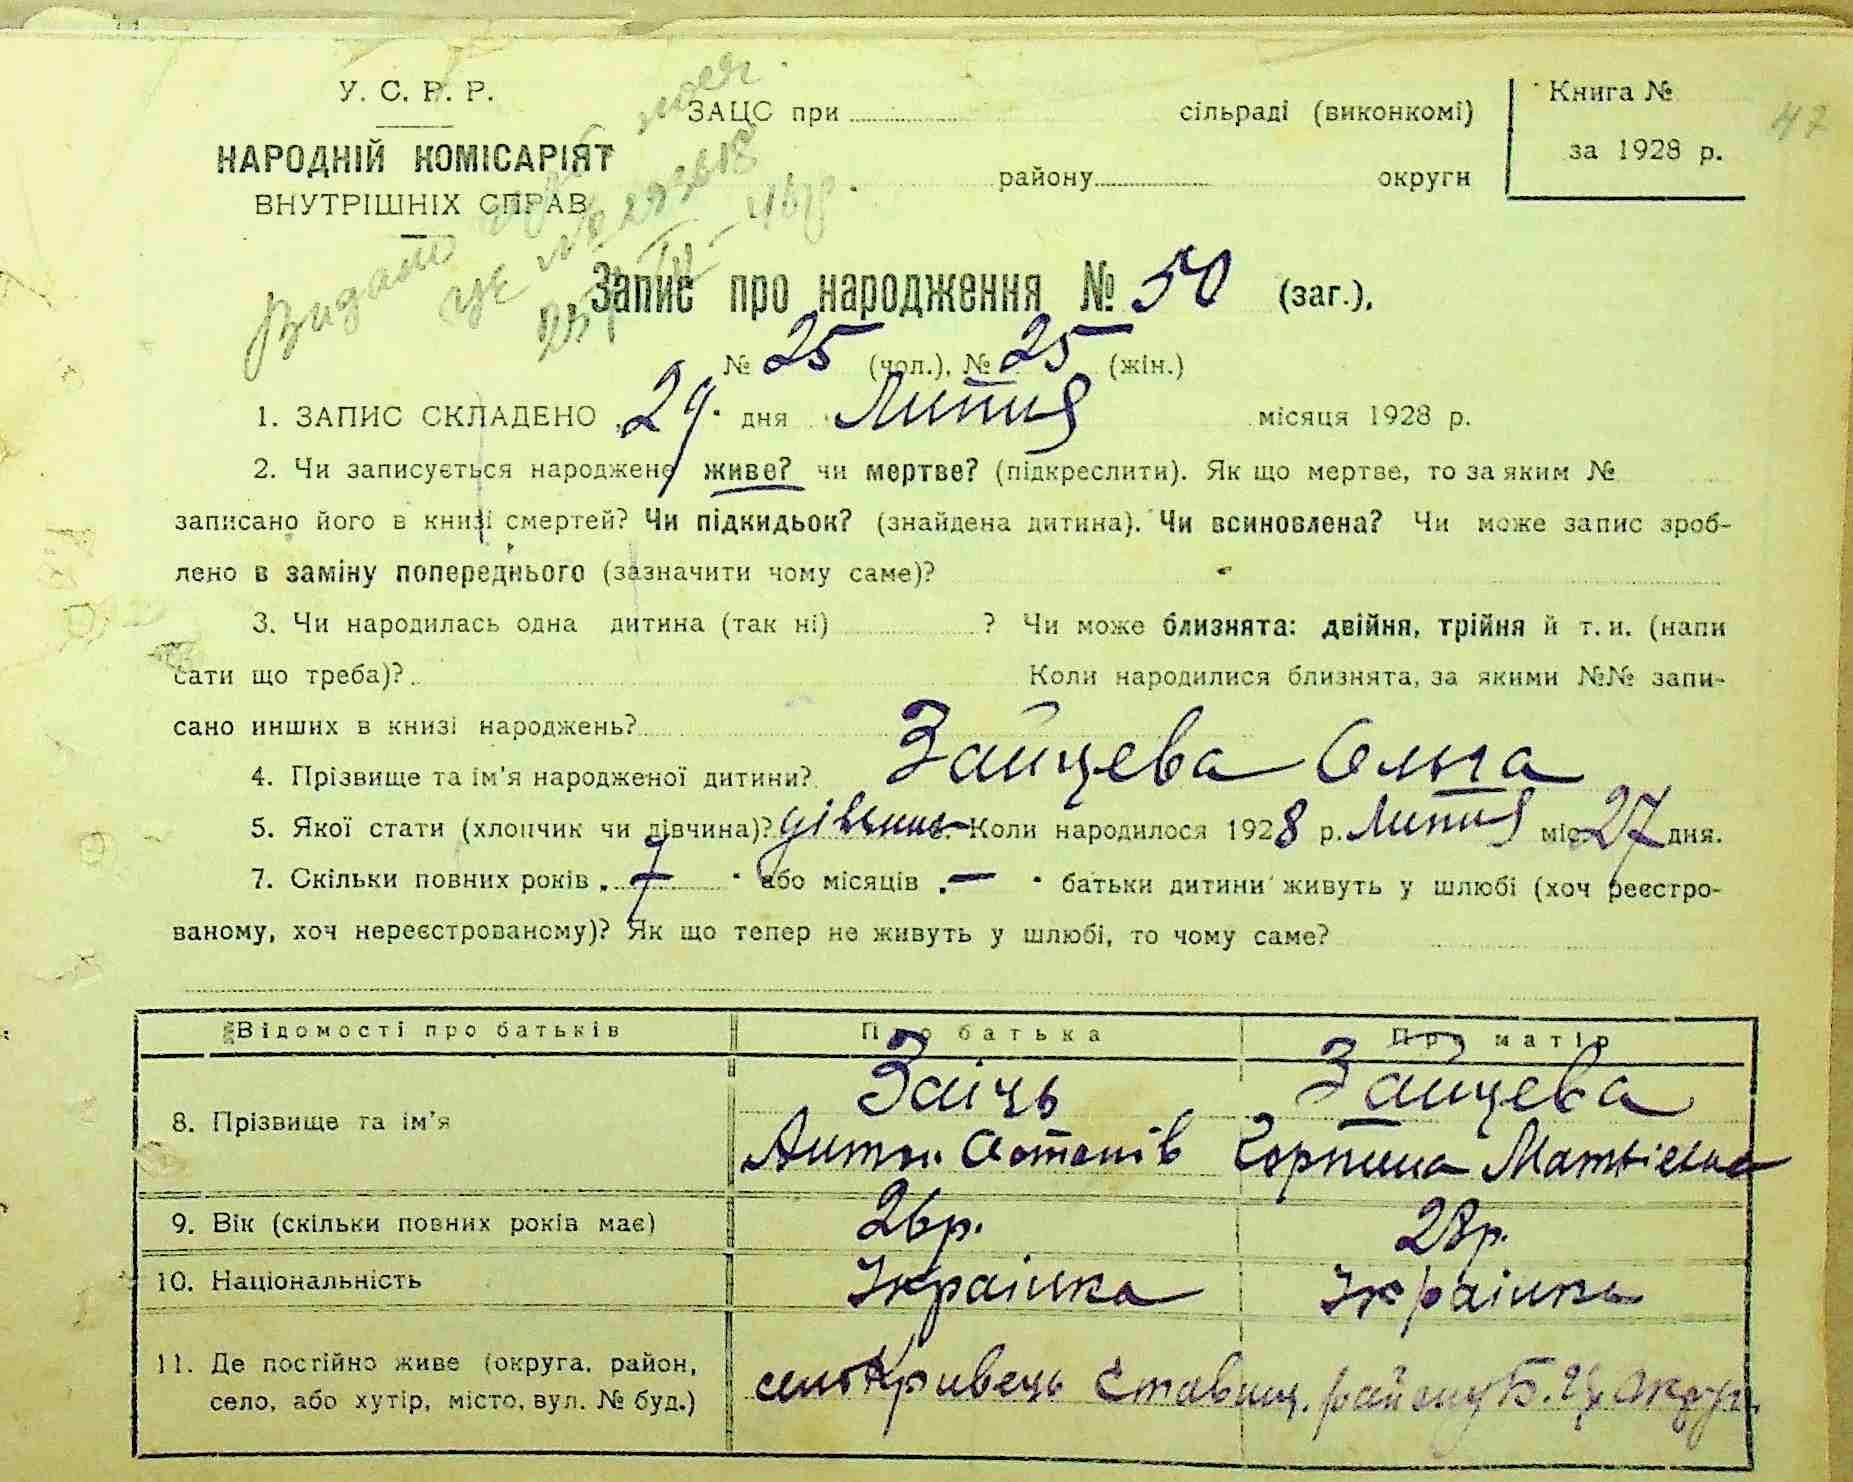 У. С. Р. Р.
НАРОДНІЙ КОМІСАРІЯТ
ВНУТРІШНІХ СПРАВ
ЗАЦС при сільраді (виконкомі)
району округи
Книга №
за 1928 р.
47
Видано
№ 293618
Запис про народження № 50 (заг.),
№ 25 (чол.), № 25 (жін.)
1. ЗАПИС СКЛАДЕНО „29" дня Липня місяця 1928 р.
2. Чи записується народжене живе? чи мертве? (підкреслити). Як що мертве, то за яким №
записано його в книзі смертей? Чи підкидьок? (знайдена дитина). Чи всиновлена? Чи може запис зроб-
лено в заміну попереднього (зазначити чому саме)?
3. Чи народилась одна дитина (так ні) ? Чи може близнята: двійня, трійня й т. и. (напи
сати що треба)? Коли народилися близнята, за якими №№ запи-
сано инших в книзі народжень?
4. Прізвище та ім'я народженої дитини? Зайцева Ольга
5. Якої стати (хлопчик чи дівчина)? Коли народилося 1928 р. Липня міс. 27 дня.
7. Скільки повних років „7" або місяців „—" батьки дитини живуть у шлюбі (хоч реєстро-
ваному, хоч нереєстрованому)? Як що тепер не живуть у шлюбі, то чому саме?
Відомості про батьків Про батька Про матір
8. Прізвище та ім'я Заіць Зайцева
Антон Горпина Матвієвна
9. Вік (скільки повних років має) 26 р. 28 р.
10. Національність Українка Українка
11. Де постійно живе (округа, район,
село, або хутір, місто, вул. № буд.) село Кривець Ставищ. району Б. Ц. Округ.